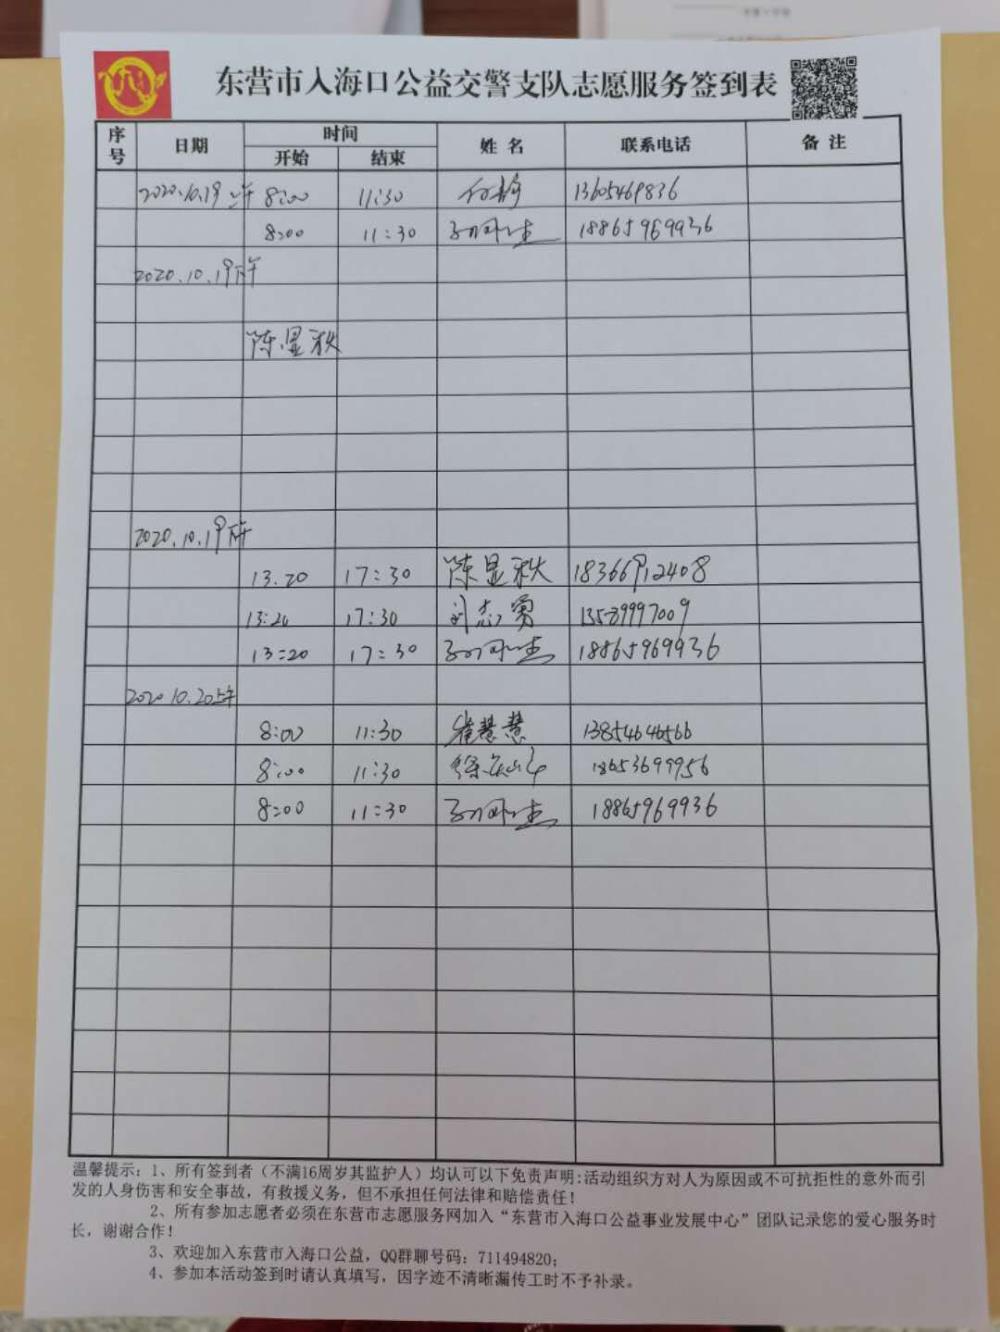 东营市入海口公益交警支队志愿服务签到表
序号 日期 时间 姓名 联系电话 备注
开始 结束
2020.10.19上午 8:00 11:30 13605469836
8:00 11:30 18865969936
2020.10.19下午
陈显秋
2020.10.19下午
13.20 17:30 陈显秋 18366912408
13:20 17:30 刘志勇
13:20 17:30 18865969936
2020.10.20上午
8:00 11:30 崔慧慧 13854646566
8:00 11:30 18653699956
8:00 11:30 18865969936
温馨提示：1、所有签到者（不满16周岁其监护人）均认可以下免责声明：活动组织方对人为原因或不可抗拒性的意外而引
发的人身伤害和安全事故，有救援义务，但不承担任何法律和赔偿责任！
2、所有参加志愿者必须在东营市志愿服务网加入“东营市入海口公益事业发展中心”团队记录您的爱心服务时
长，谢谢合作！
3、欢迎加入东营市入海口公益，QQ群聊号码：711494820；
4、参加本活动签到时请认真填写，因字迹不清晰漏传工时不予补录。